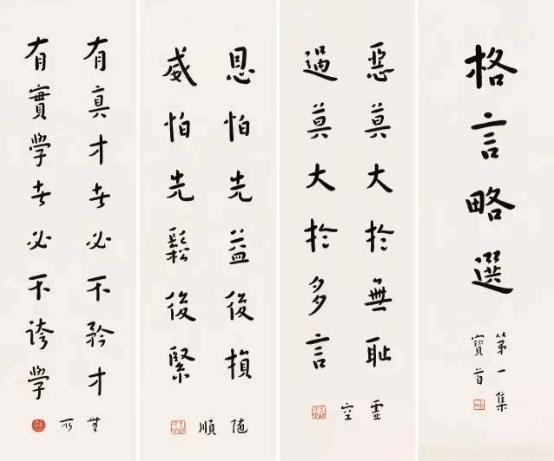 格言略選
第一集
寶首
惡莫大於無恥
過莫大於多言
靈空
恩怕先益後損
威怕先鬆後緊
随順
有真才者必不矜才
有實学者必不誇学
無所